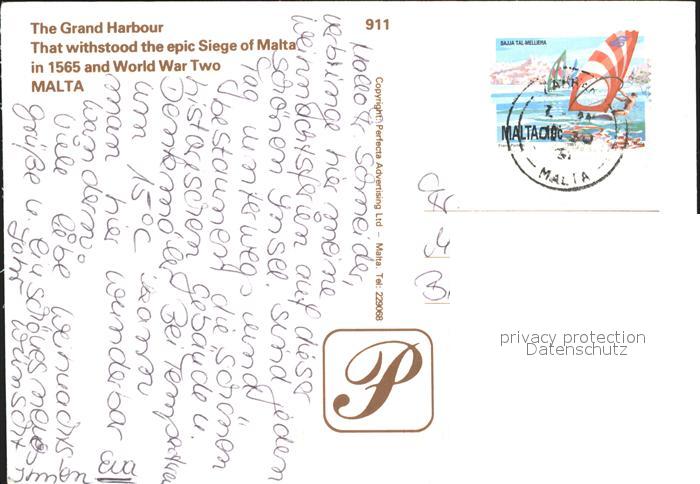 The Grand Harbour
That withstood the epic Siege of Malta
in 1565 and World War Two
MALTA
911
BAJJA TAL-MELLIEHA
MALTA 10c
MALTA
Copyright: Perfecta Advertising Ltd – Malta. Tel: 229068
P
privacy protection
Datenschutz
Hallo Fr. Schneider,
verbringe hier meine
Weihnachtsferien auf dieser
schönen Insel. Sind jeden
Tag unterwegs und
bestaunen die schönen
historischen Gebäude u.
Denkmäler. Bei Temperaturen
um 15°C kann
man hier wunderbar
wandern.
Viele liebe Weihnachts-
grüße u. ein schönes neues
Jahr wünscht Ihnen
Eva